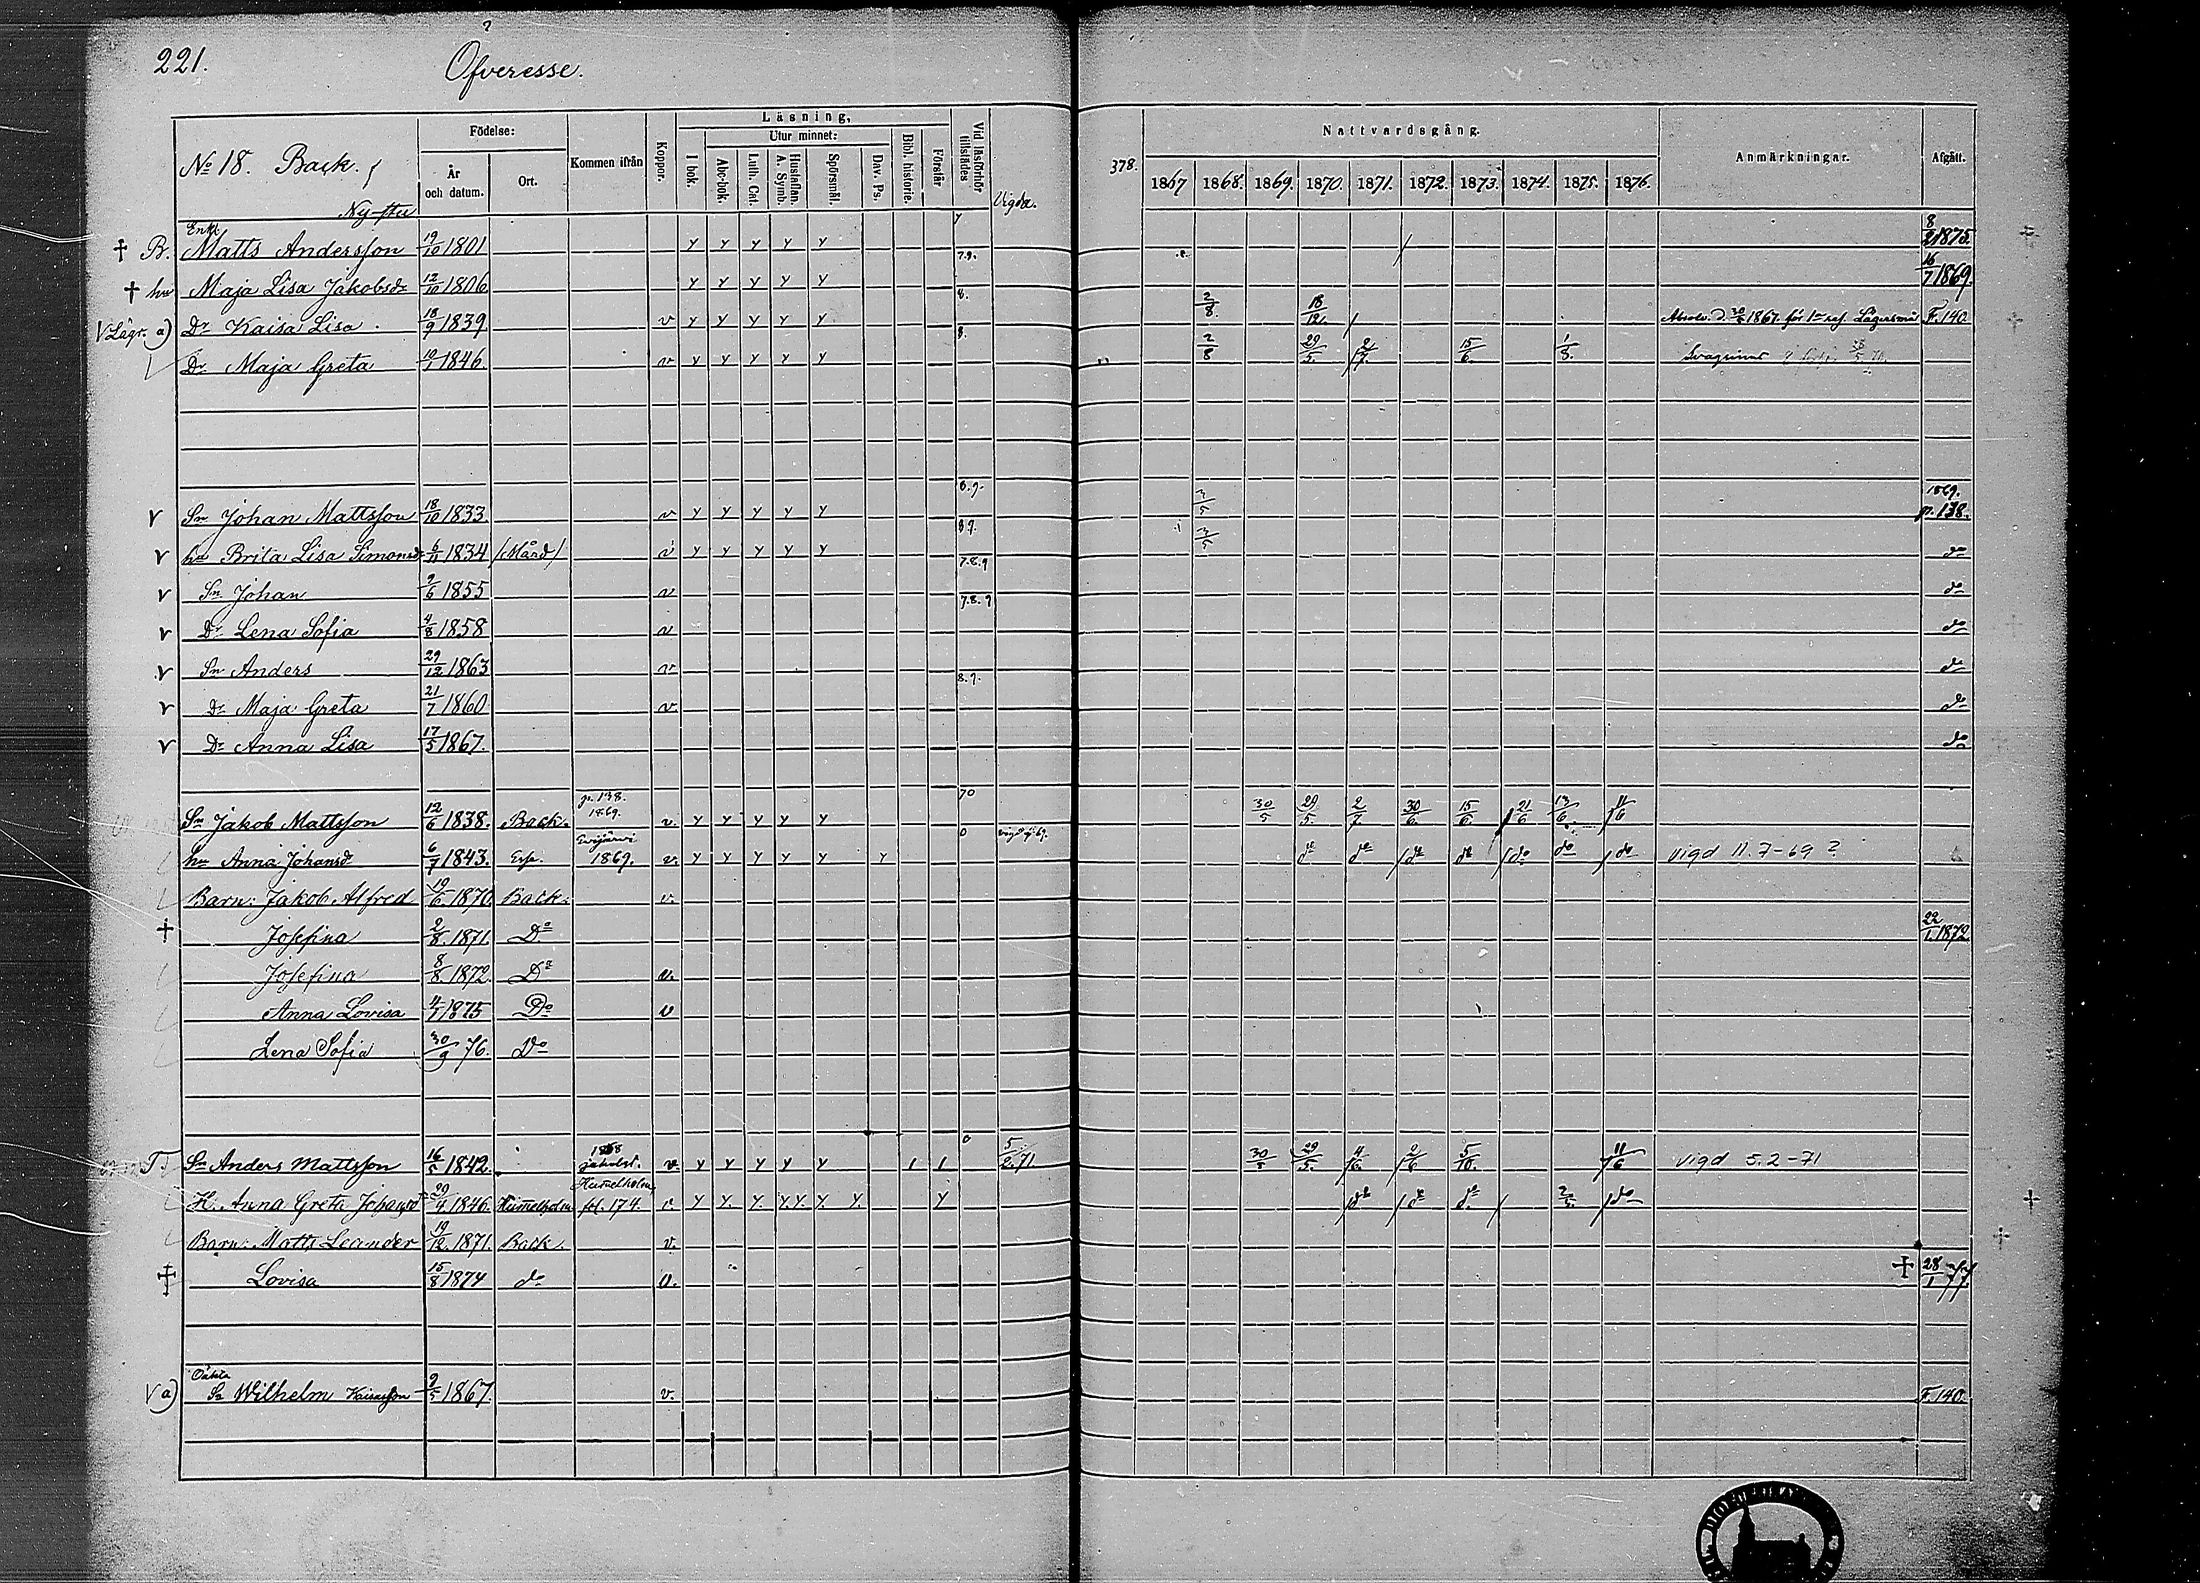 221.
Öfveresse.
Födelse:
Kommen ifrån
Koppor.
Läsning,
Utur minnet:
Vid läsförhör tillstädes
Vigde.
378.
Nattvardsgång.
Anmärkningar.
Afgått.
No 18. Back.
År och datum.
Ort.
I bok.
Abc-bok.
Luth. Cat.
Hustaflan. A. Symb.
Spörsmål.
Dav. Ps.
Bibl. historie.
Förstår
1867 1868. 1869. 1870. 1871. 1872. 1873. 1874. 1875. 1876.
Ny-
Enkl.
† B. Matts Andersson 19/10 1801 y y y y y 7 8/2 1875.
† hu Maja Lisa Jakobsdr 12/10 1806 y y y y y 7.9. 16/7 1869.
V Lägr. a) Dr Kaisa Lisa 18/9 1839 v y y y y y 8. 2/8 18/12. Absolv. d. 1867 för 1 Lägersmål F. 140
Dr Maja Greta 10/1 1846. v y y y y y 8. 2/8 29/5. 2/7. 15/6. 1/8. Svagsinnt
v Sn Johan Mattsson 18/10 1833. v y y y y y 8.9. 3/5 1869. p. 138.
v hu Brita Lisa Simonsdr 6/11 1834 /Mård/ v y y y y y 8 9. 3/5 do
v Sn Johan 9/6 1855 v 7.8.9 do
v Dr Lena Sofia 4/8 1858 v 7.8.9 do
v Sn Anders 29/12 1863 v do
v Dr Maja Greta 21/7 1860 v. 8.9. do
v Dr Anna Lisa 17/5 1867. do
Sn Jakob Mattsson 12/6 1838. Back. p. 138. 1869. v. y y y y y 70 30/5 29/5. 2/7 30/6. 15/6. 21/6 13/6. 11/6
hu Anna Johansdr 6/7 1843. Esp. Evijärvi 1869. v. y y y y y y 0 do do do do do do do vigd 11.7-69?
Barn: Jakob Alfred 19/6 1870. Back. v.
† Josefina 2/8. 1871. Do 22/1. 1872
Josefina 8/8. 1872. Do v.
Anna Lovisa 4/1 1875 Do v
Lena Sofia 30/9 76. Do
Sn Anders Mattsson 16/5 1842. 1868 v. y y y y y 1 1 0 5/2.71 30/5 29/5. 4/6. 2/6 5/10. 11/6 vigd 5.2-71
H. Anna Greta Johansdr 29/4. 1846. Hummelholm Hummelholm, fol. 174. v. y y. y. y.y. y. y. y do do do. do
Barn: Matts Leander 19/12. 1871. Back. v.
† Lovisa 15/8 1874 do v. † 28/1 77.
Oäkta
V a) Sn Wilhelm Kaisasson 9/5 1867. v. F. 140.